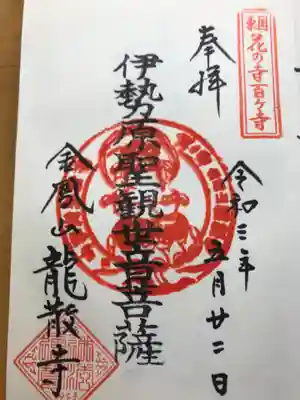 東国花の寺百ヶ寺
奉拝
令和三年
五月廿二日
伊勢原聖観世音菩薩
金鳳山
龍散寺